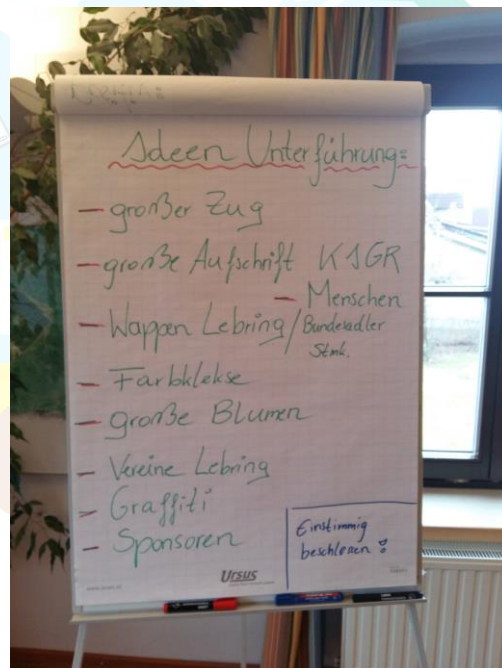 Ideen Unterführung:
- großer Zug
- große Aufschrift KIGR
- Menschen
- Wappen Lebring / Bundesadler
Stmk.
- Farbklekse
- große Blumen
- Vereine Lebring
- Graffiti
- Sponsoren
Einstimmig
beschlossen!
Ursus
www.ursus.at